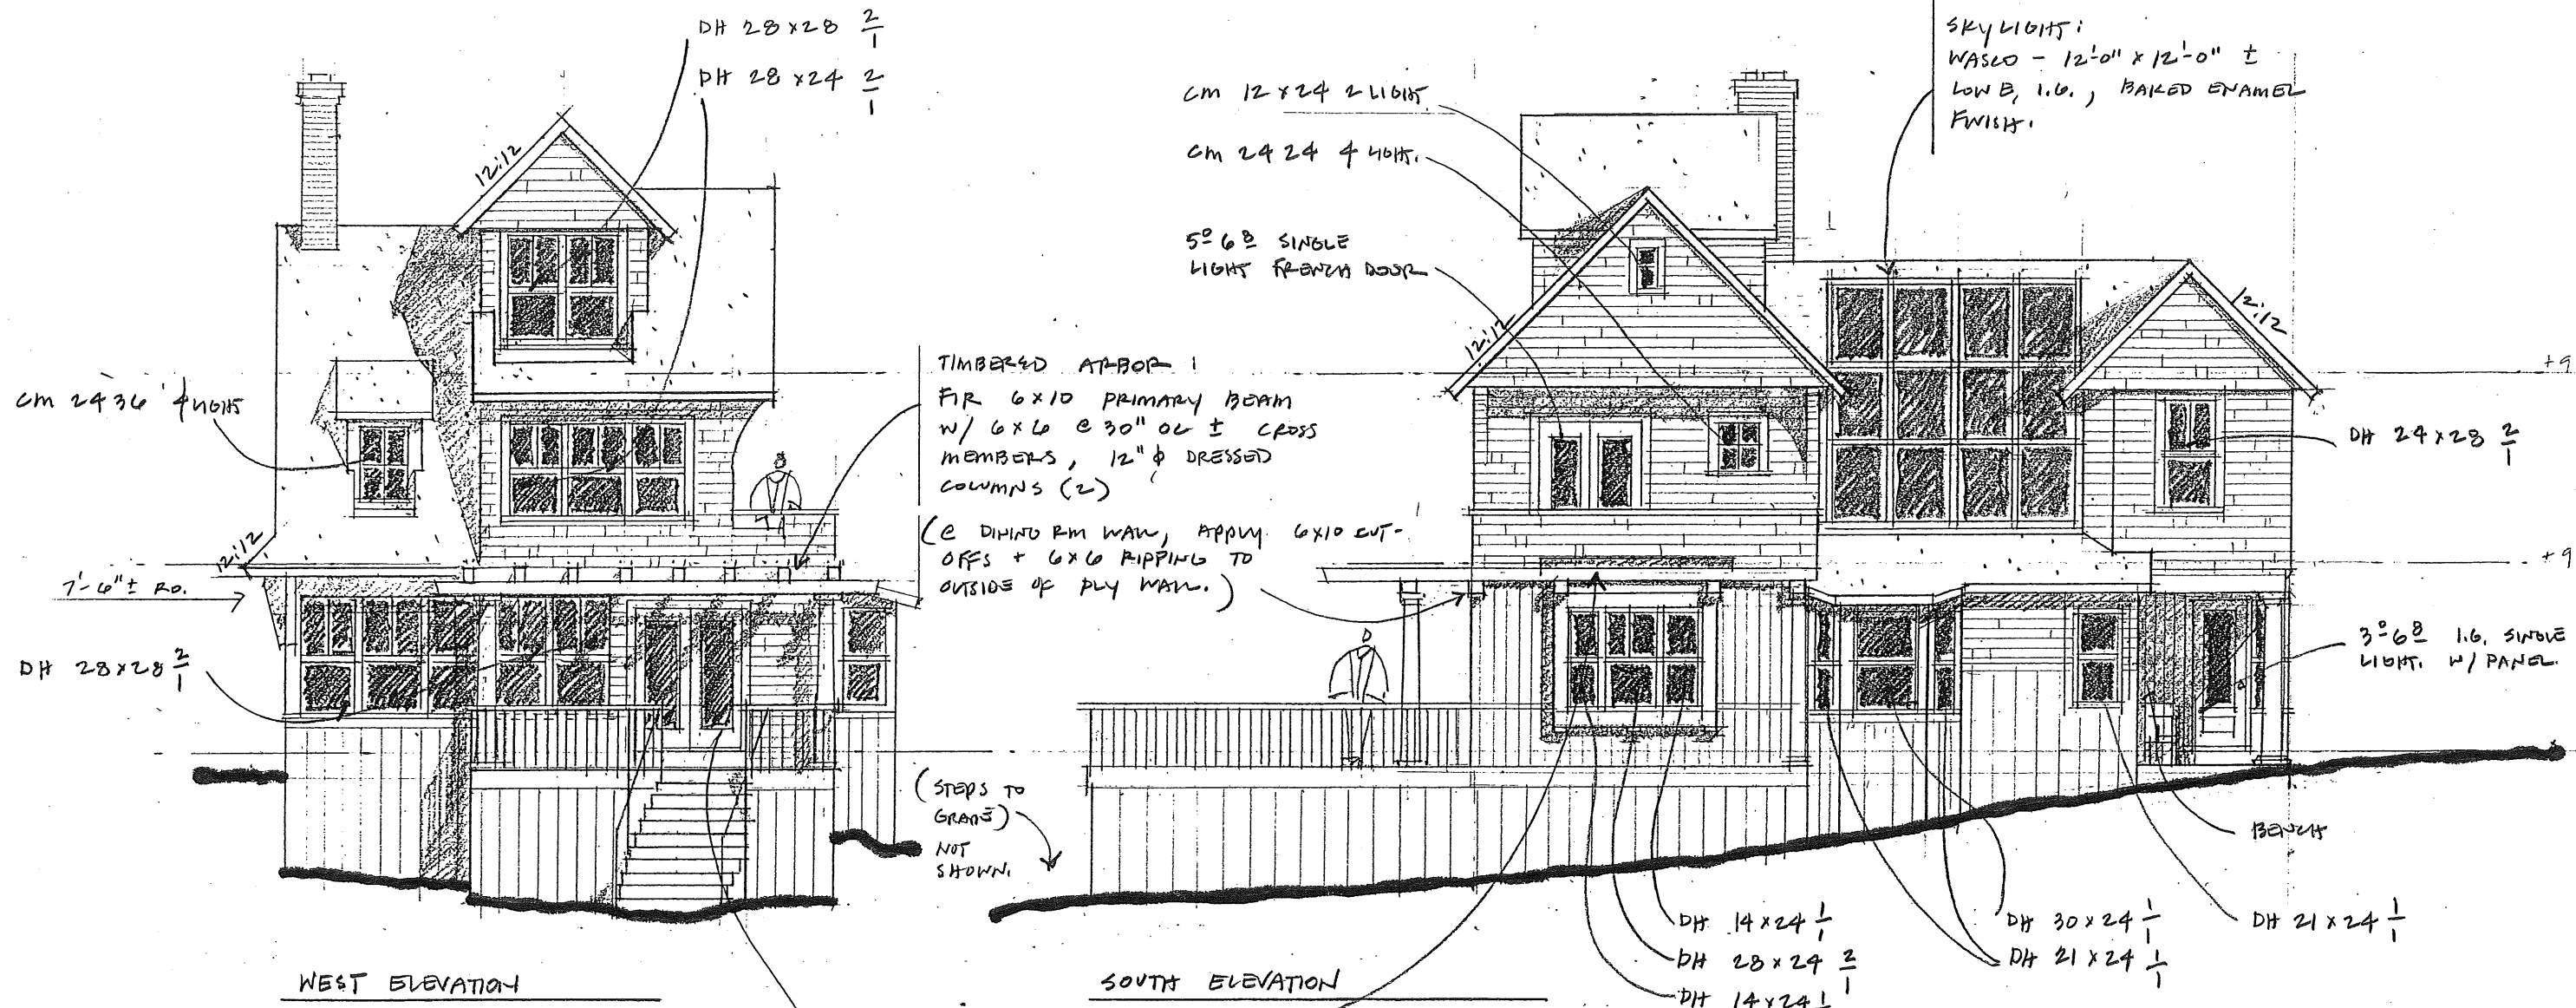 DH 28x28 2/1
DH 28x24 2/1
12:12
CM 2436 4 LIGHT
12:12
7'-6"± RO.
DH 28x28 2/1
TIMBERED ARBOR:
FIR 6x10 PRIMARY BEAM
W/ 6x6 @ 30" OC ± CROSS
MEMBERS, 12"ϕ DRESSED
COLUMNS (2)
(@ DINING RM WALL, APPLY 6x10 CUT-
OFFS + 6x6 RIPPING TO
OUTSIDE OF PLY WALL.)
(STEPS TO
GRADE)
NOT
SHOWN.
WEST ELEVATION
CM 12x24 2 LIGHT
CM 2424 4 LIGHT.
5⁰ 6⁸ SINGLE
LIGHT FRENCH DOOR
12:12
SKYLIGHT:
WASCO - 12'-0" x 12'-0" ±
LOW E, I.G., BAKED ENAMEL
FINISH.
12:12
+9
DH 24x28 2/1
+9
3⁰6⁸ I.G. SINGLE
LIGHT. W/ PANEL.
BENCH
DH 14x24 1/1
DH 28x24 2/1
DH 14x24 1
DH 30x24 1/1
DH 21x24 1/1
DH 21x24 1/1
SOUTH ELEVATION